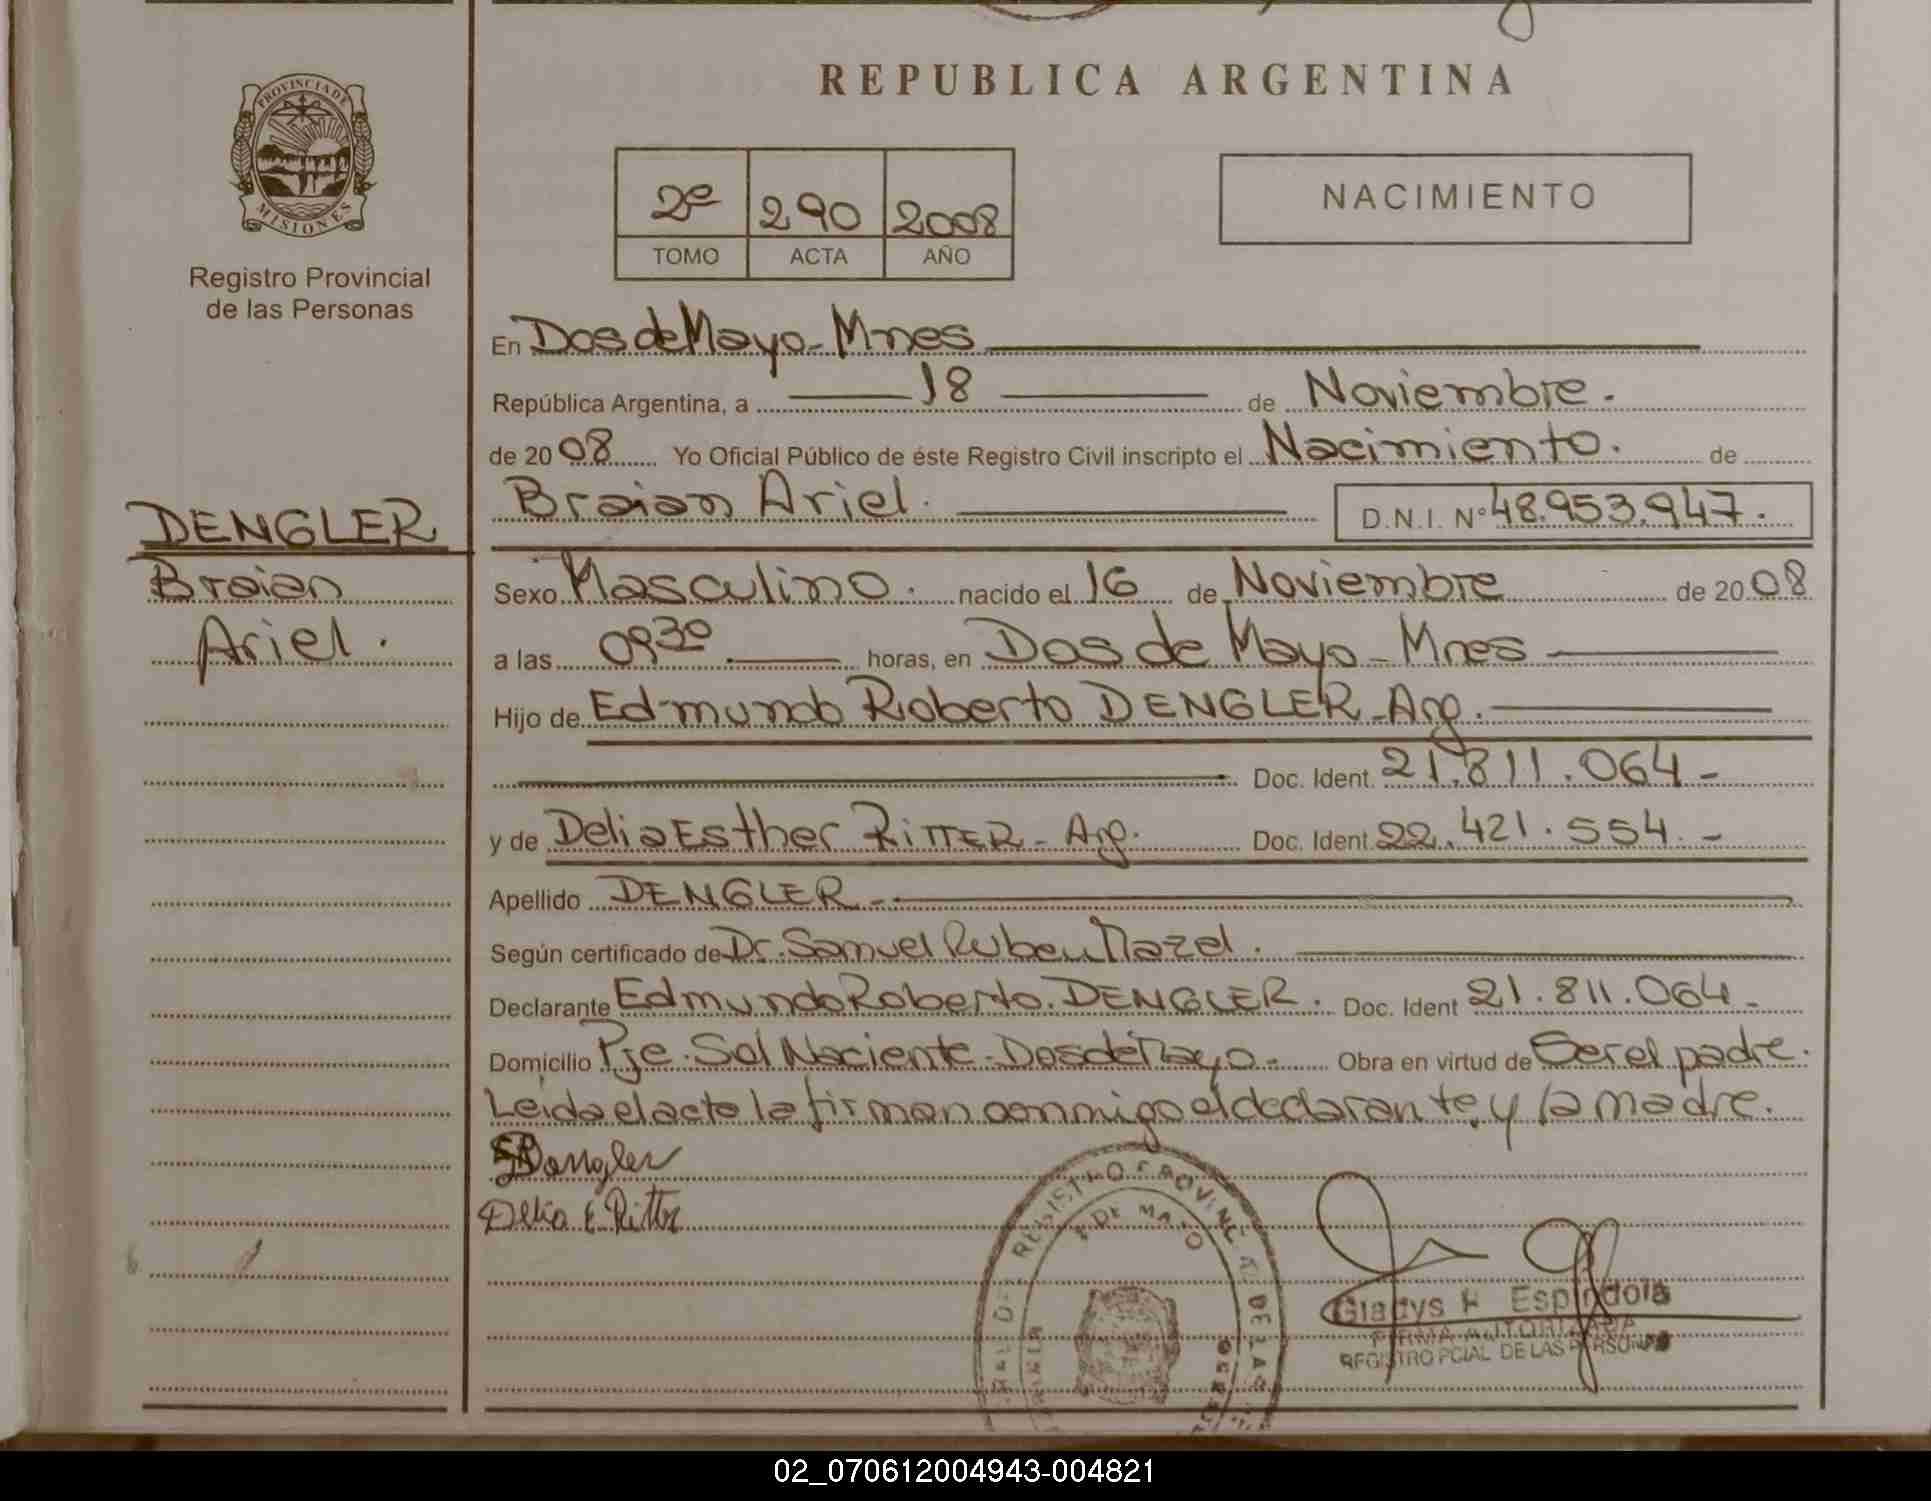 REPUBLICA ARGENTINA
PROVINCIA DE
MISIONES
Registro Provincial
de las Personas
2º 290 2008
TOMO ACTA AÑO
NACIMIENTO
En Dos de Mayo - Mnes
República Argentina, a 18 de Noviembre.
de 2008 Yo Oficial Público de éste Registro Civil inscripto el Nacimiento. de
Braian Ariel. D.N.I. Nº 48.953.947.
DENGLER
Braian
Ariel.
Sexo Masculino. nacido el 16 de Noviembre de 2008
a las 09³⁰ horas, en Dos de Mayo - Mnes
Hijo de Edmundo Roberto DENGLER - Arg.
Doc. Ident. 21.811.064 -
y de Delia Esther RITTER - Arg. Doc. Ident. 22.421.554. -
Apellido DENGLER -
Según certificado de Dr. Samuel Ruben
Declarante Edmundo Roberto. DENGLER. Doc. Ident 21.811.064 -
Domicilio Pje. Sol Naciente - Dos de Mayo - Obra en virtud de Ser el padre.
Leida el acta la firman conmigo el declarante, y la madre.
Dengler
Delia E. Ritter
REGISTRO PROVINCIAL DE LAS
DE MAYO
Gladys H Espindola
FIRMA AUTORIZADA
REGISTRO PCIAL DE LAS PERSONAS
02_070612004943-004821